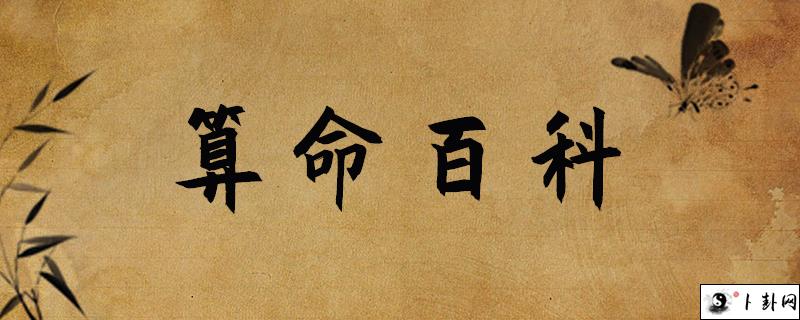 算命百科
卜卦网